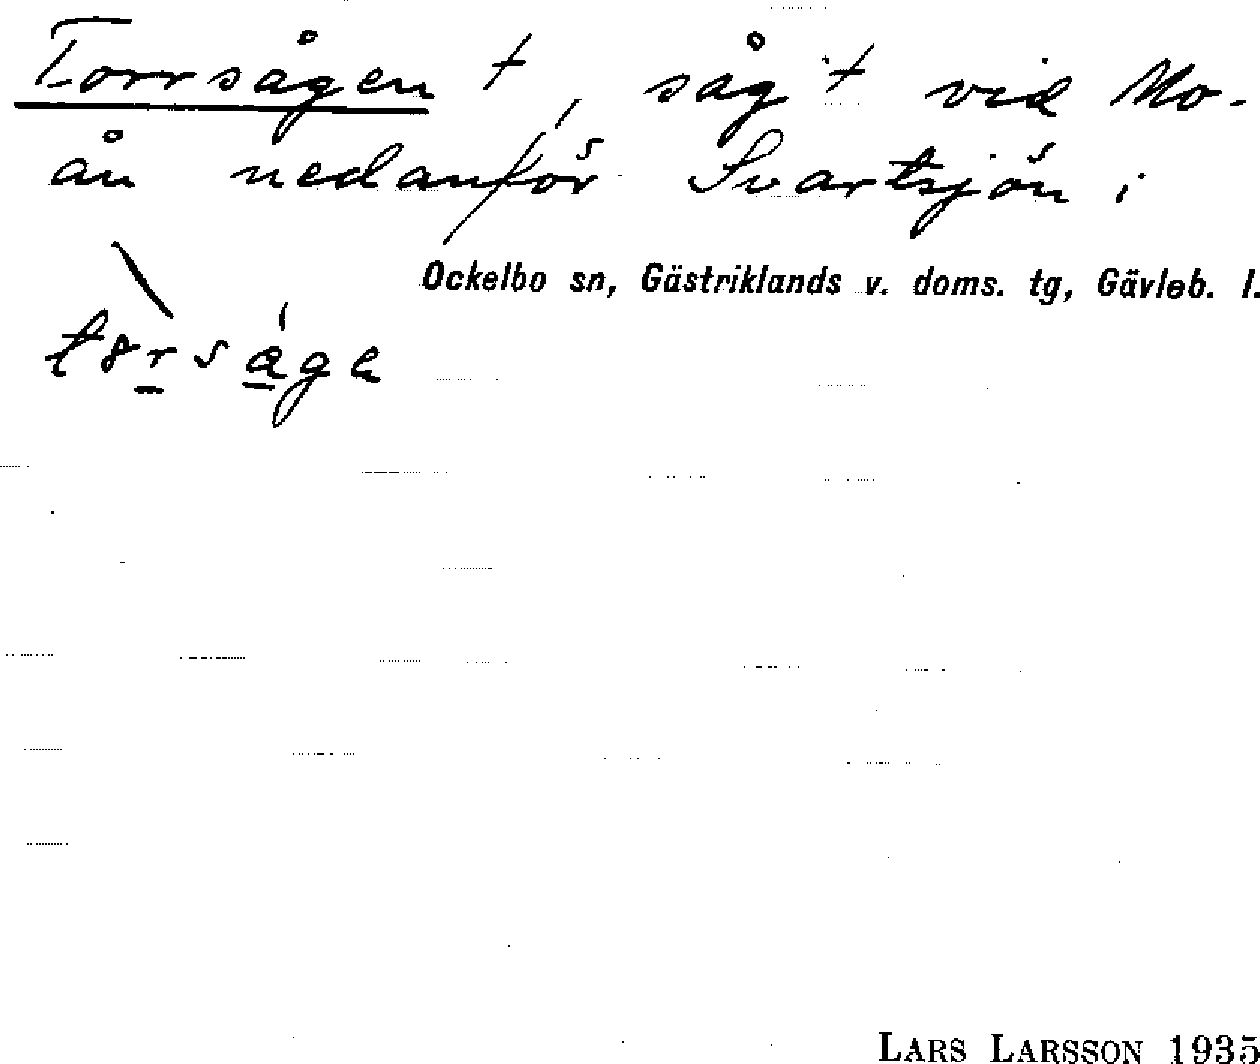 Torrsågen †, såg † vid Mo-
ån nedanför Svartsjön i
Ockelbo sn, Gästriklands v. doms. tg, Gävleb. l.
LARS LARSSON 1935